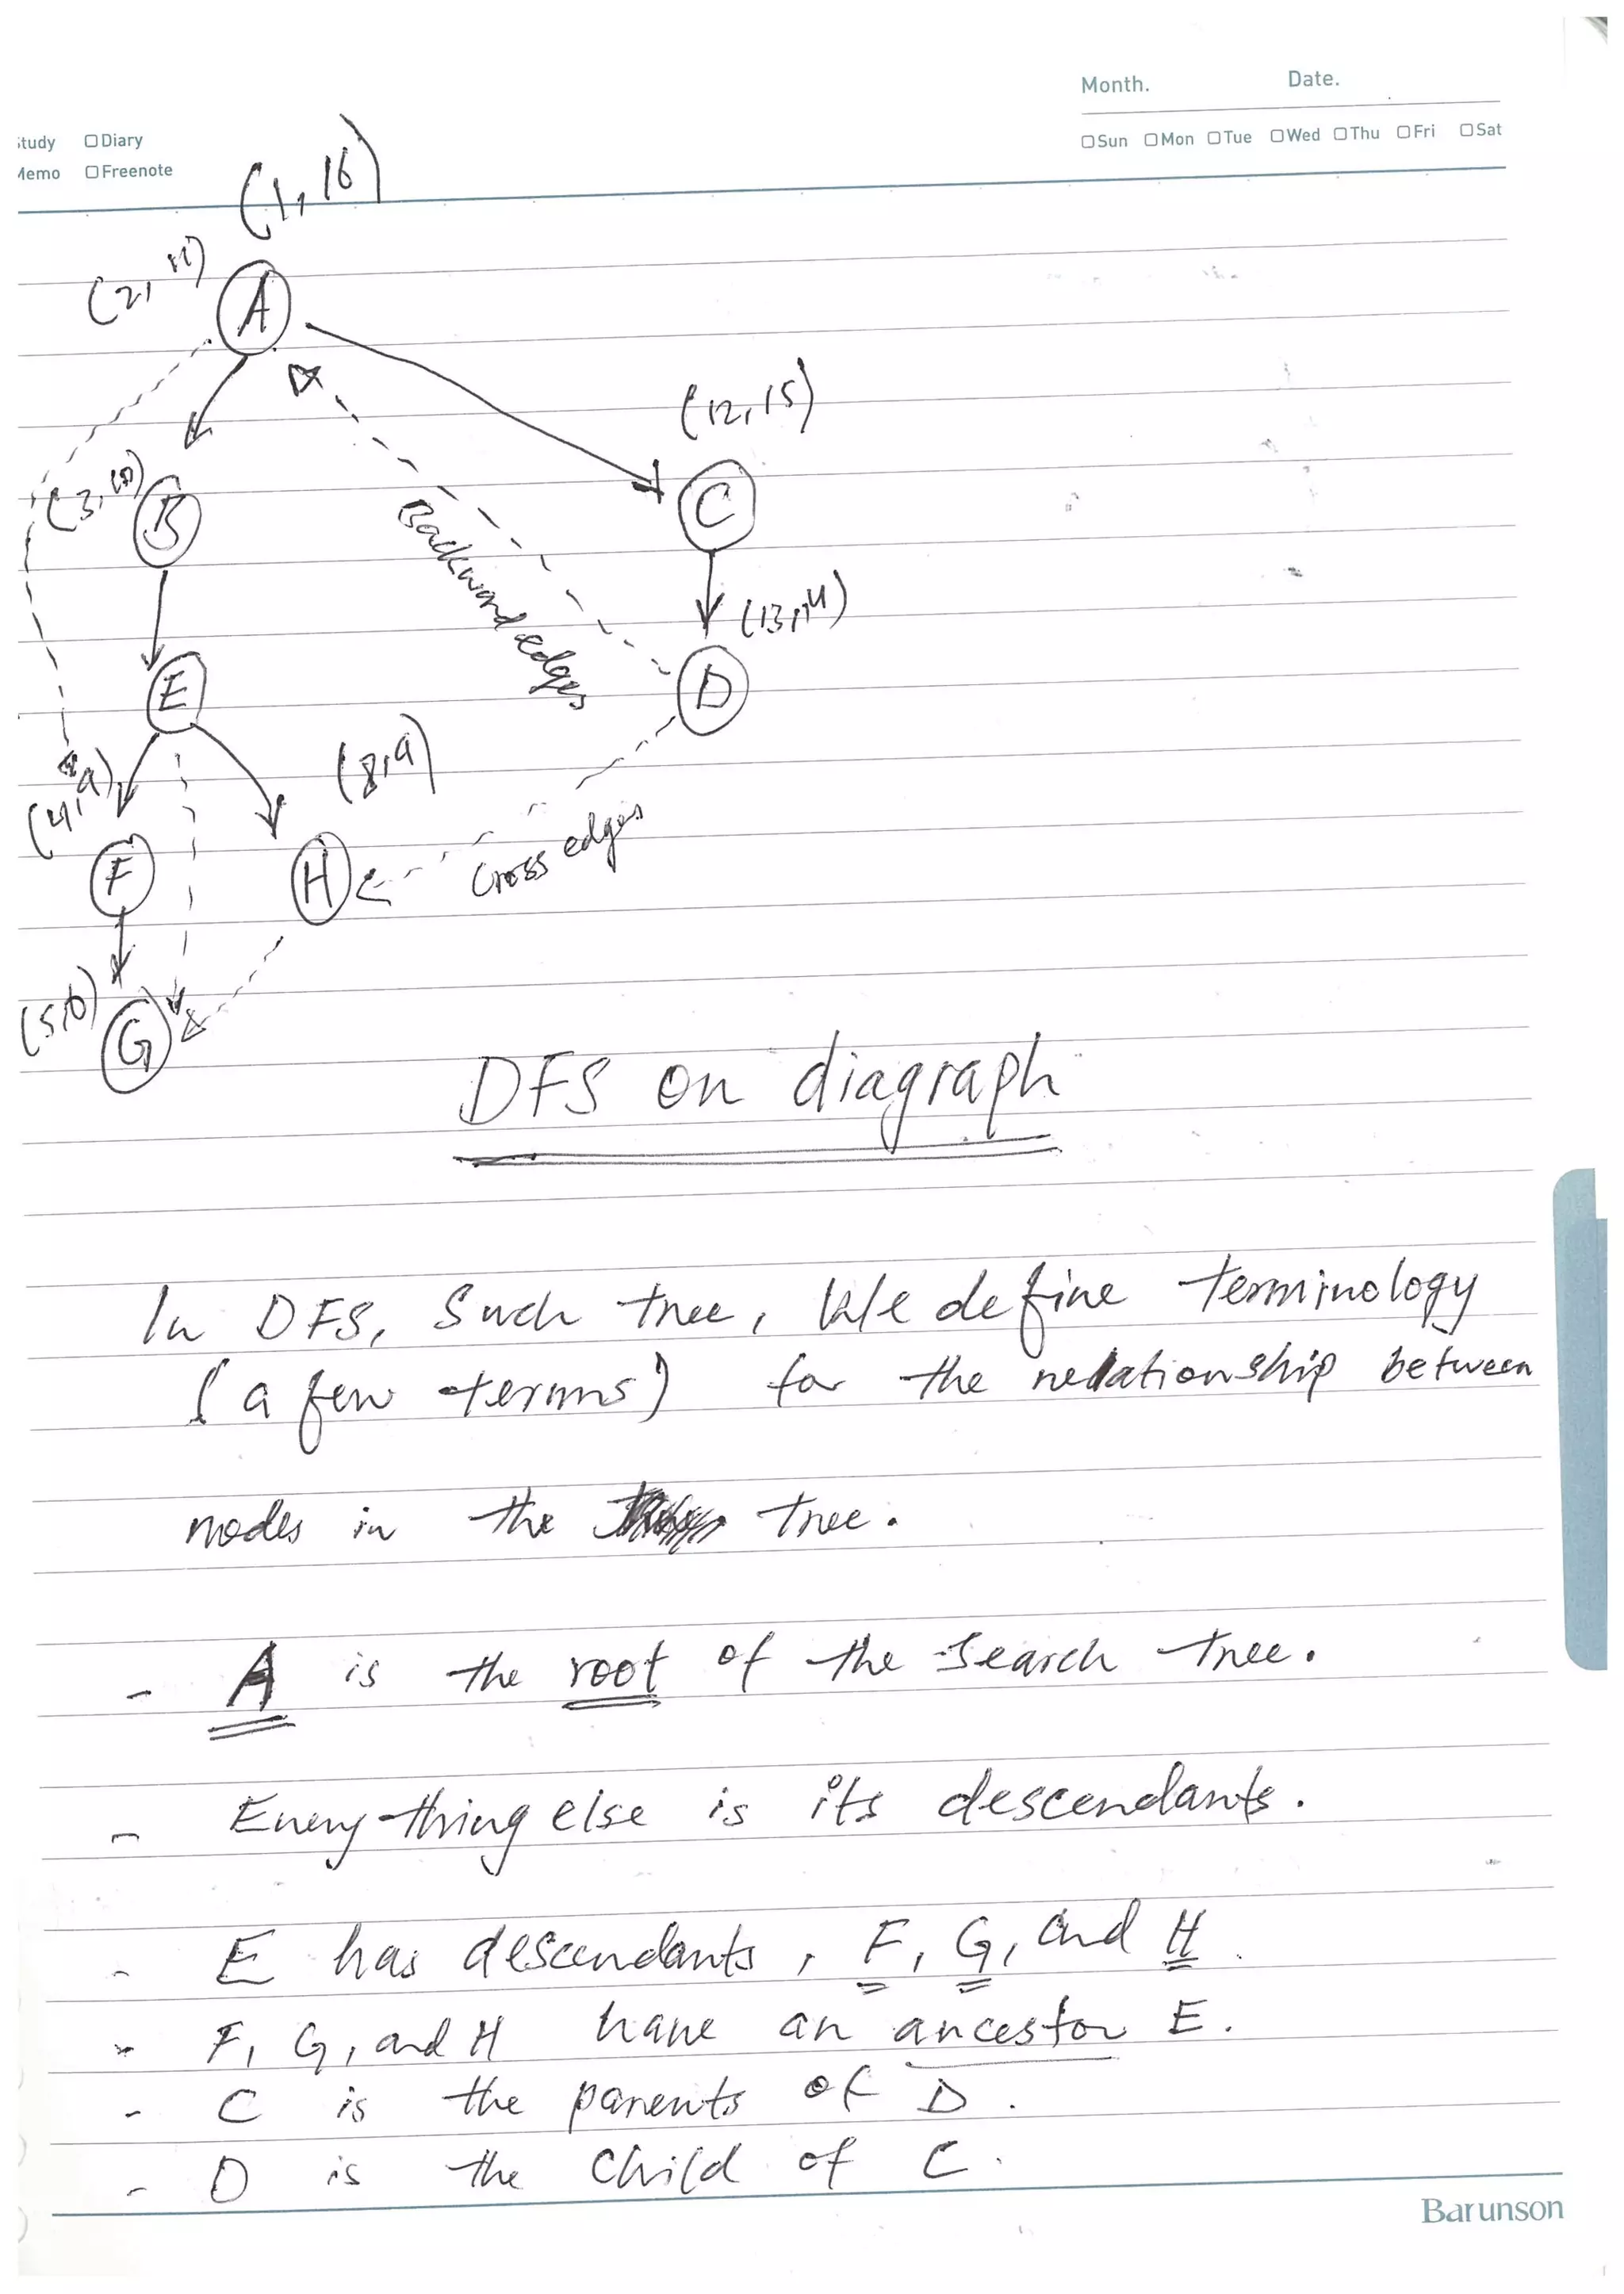 Month. Date.
Study Diary
Sun Mon Tue Wed Thu Fri Sat
Memo Freenote
(1, 16)
(2, 11)
A
(12, 15)
(3, 10)
B
C
Backward edges
(13, 14)
E
D
(8, 9)
F
H
Cross edges
(5, 6)
G
DFS on diagraph
In DFS, Such tree, We define terminology
(a few terms) for the relationship between
nodes in the tree.
- A is the root of the search tree.
- Everything else is its descendants.
- E has descendants, F, G, and H.
- F, G, and H have an ancestor E.
- C is the parents of D.
- D is the child of C.
Barunson